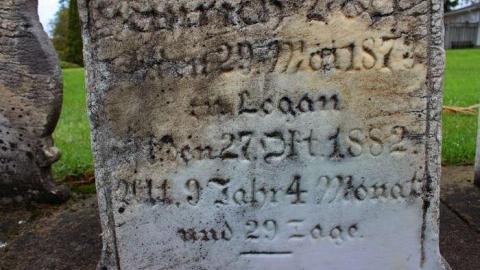 29. Mai 187
in Logan
den 27. Okt 1882.
Alt. 9 Jahr 4 Monat
und 29 Tage.